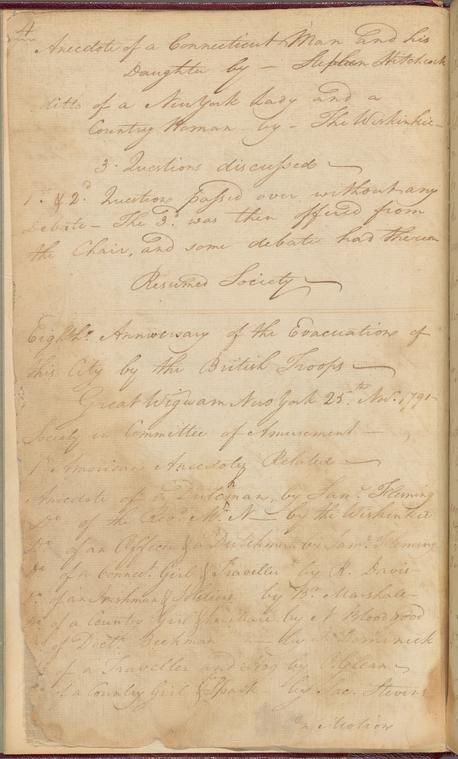 4
Anecdote of a Connecticut Man and his
Daughter by — Stephen Hitchcock
ditto of a New York Lady and a
Country Woman by — The Wiskinkie —
3. Questions discussed —
1st. & 2d. Questions passed over without any
Debate — The 3d. was then offered from
the Chair, and some debate had thereon
Resumed Society —
Eighth Anniversary of the Evacuations of
this City by the British Troops —
Great Wigwam New York 25th Novr. 1791
Society in Committee of Amusement —
1st American Anecdotes Related —
Anecdote of a Dutchman, by Saml. Fleming
Do of the Revd. Mr. N— by the Wiskinkie
Do of an Officer & a Dutchman by Saml. Fleming
Do of a Connect. Girl & Traveller by R. Davis —
Do of an Irishman & by Wm. Marshall —
Do of a Country Girl & by N Bloodgood
Do of Doctr. Beekman — by F. Dominick
Do of a Traveller and by —
Do of a Country Girl & Spark by Jac. Stevens
On Motion